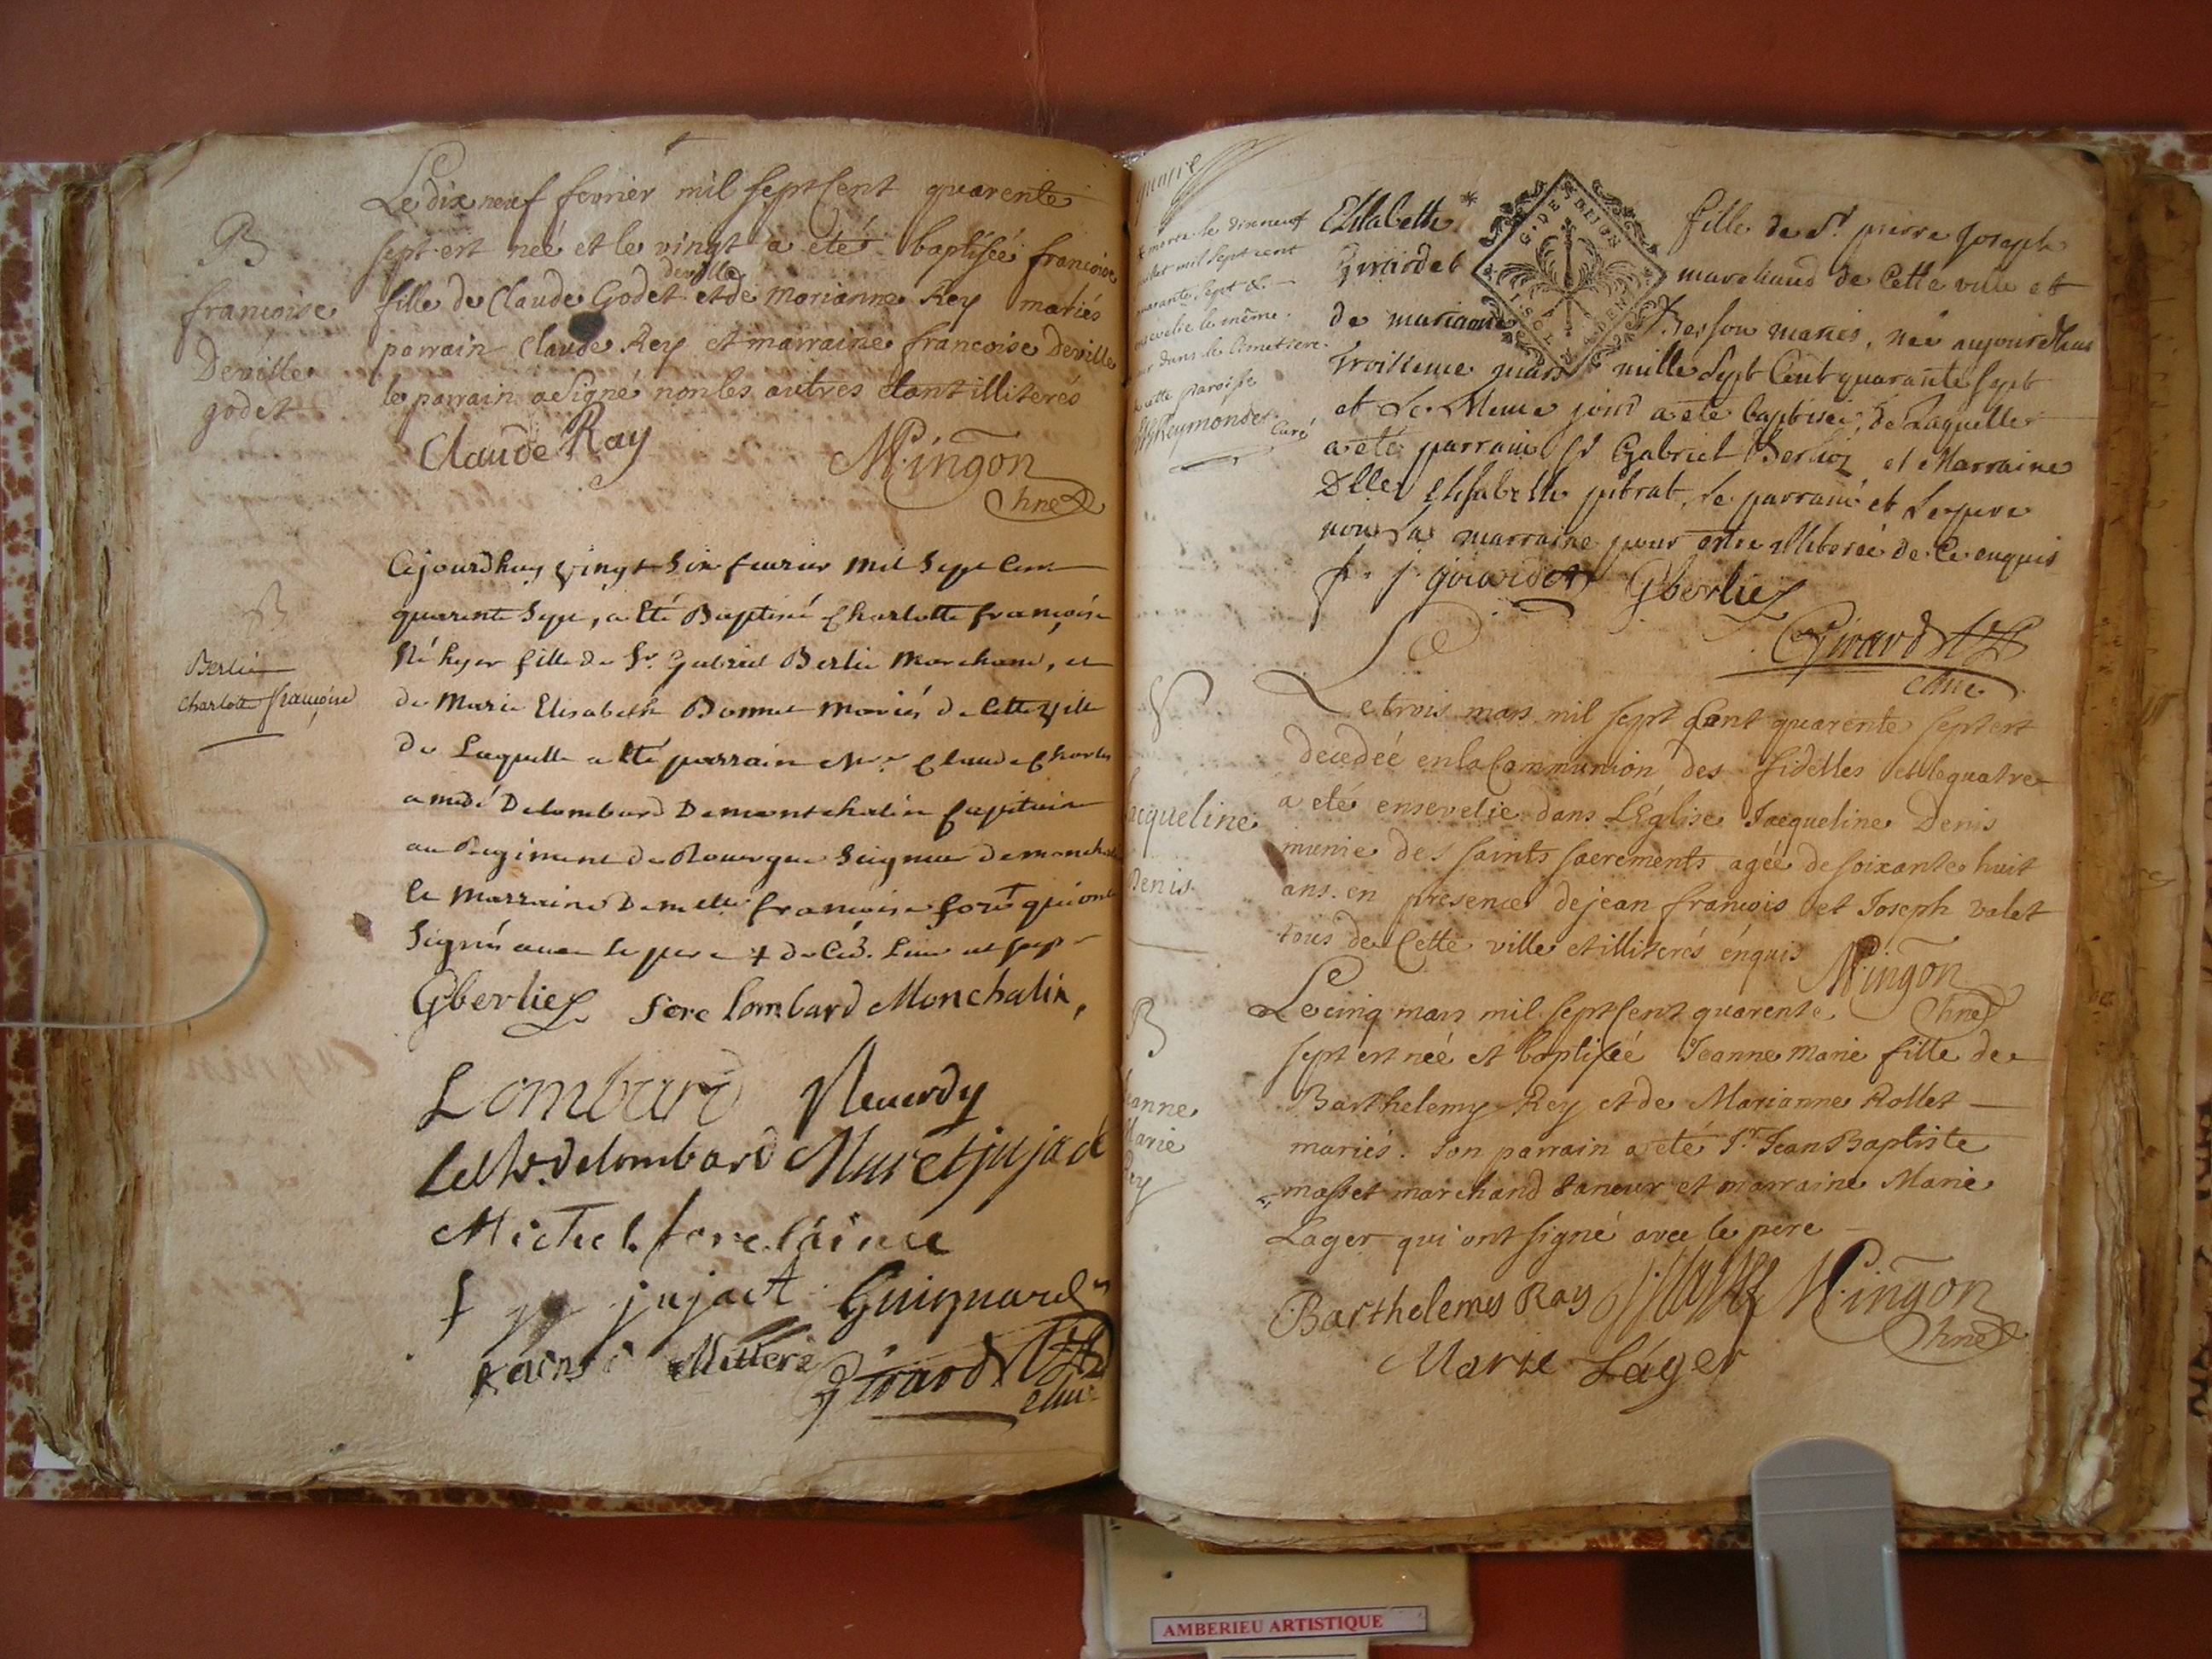 Le dix neuf fevrier mil sept Cent quarente
sept est neé et le vingt a eté baptiseé francoise
deville
fille de Claude Godet et de Marianne Rey mariés
parrain Claude Rey et marraine francoise Deville
le parrain a signé non les autres etant illiterés
B
francoise
Deville
godet
Claude Ray
Mingon
Chne
Cejourdhuy vingt Six feurier Mil Sept Cent
quarente Sept, a Eté Baptisé Charlotte françoise
fille de Sr. Gabriel Berlie Marchand, et
de Marie Elisabeth Bonnet Mariés de Cette Ville
de Laquelle a Eté parrain Claude Charles
amedé Delombard Demontchalin Capitaine
au Regiment de Rouergue Seigneur
La Marraine francoise foré qui ont
Signés avec le pere
B
Berlie
Charlotte françoise
Gberliez fore lombard Monchalin,
Lombard Reuerdy
delombard Muret jujat
Michel fore laisnee
jujact Guignard
Milliere Girard
chne
morte le dixneuf
mil Sept cent
quarante Sept &c
ensevelie le même
jour dans le Cimetiere
de cette paroisse
Reymondet
Curé
Elisabette * fille de Sr. pierre Joseph
G. DES DIJON
Girardet marchand de Cette ville et
de marianne Berson mariés, née aujourdhuy
Troisieme mars mille Sept Cent quarante sept
et Le Meme jour a eté baptisée, de Laquelle
a eté parrain Sr Gabriel Berlioz et Marraine
Dlle Elisabelle jubrat, Le parrain et Le pere
non La marraine pour estre illiterée de Ce enquis
p. j. girardet Gberliez
Girard
chne
Le trois mars mil sept Cent quarente sept est
decedeé en la Communion des fidelles et le quatre
a eté ensevelie dans L'Eglise Jacqueline Denis
munie des saints sacrements ageé de soixante huit
ans en presence de jean francois et Joseph valet
tous de Cette ville et illiterés énquis
Jacqueline
Denis
Mingon
Chne
Le cinq mars mil sept Cent quarente
sept est neé et baptiseé Jeanne Marie fille de
Barthelemy Rey et de Marianne Rollet
mariés. Son parrain a eté Sr. Jean Baptiste
masset marchand taneur et marraine Marie
Lager qui ont signé avec le pere
B
Jeanne
Marie
Rey
Barthelemy Ray Masset Mingon
Chne
Marie Láger
AMBERIEU ARTISTIQUE